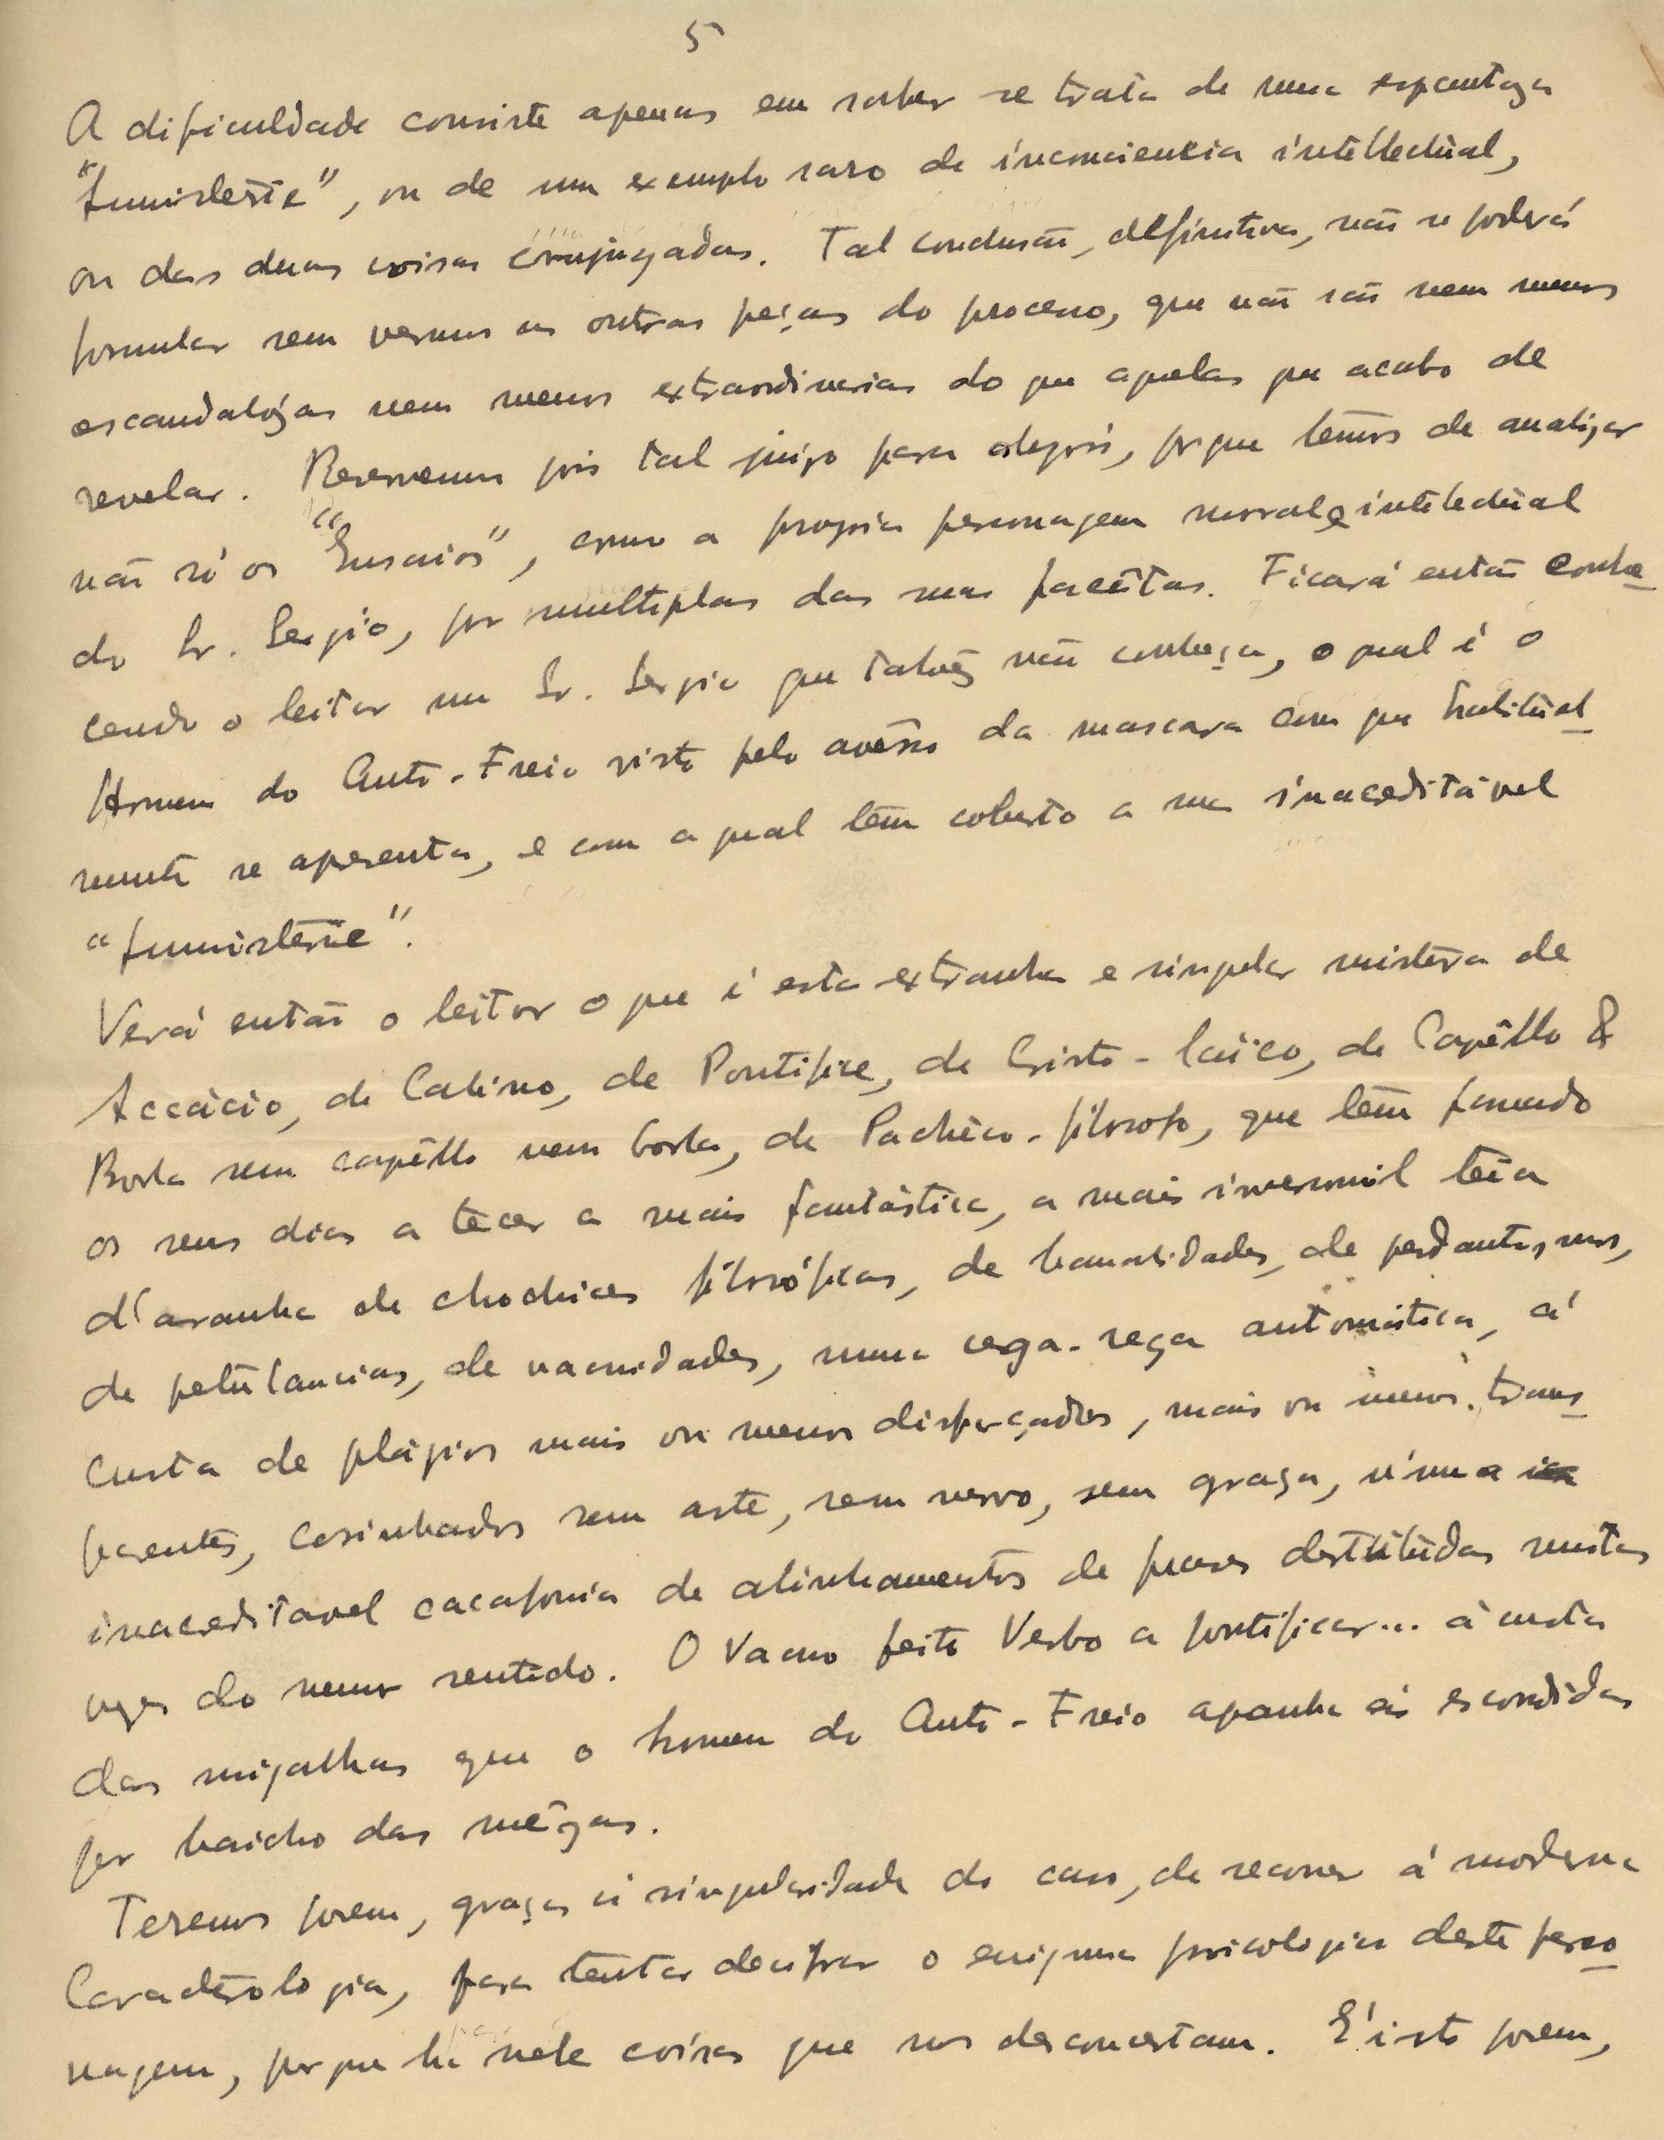 5
A dificuldade consiste apenas em saber se trata de uma espantoza
"fumisterie", ou de um exemplo raro de inconsciencia intellectual,
ou das duas coisas conjugadas. Tal conclusão, definitiva, não se poderá
formular sem vermos as outras peças do processo, que não são nem menos
escandalózas nem menos extraordinarias do que aquelas que acabo de
revelar. Reservemos pois tal juizo para depois, porque temos de analizar
não só os "Ensaios", como a propria personagem moral e intelectual
do Sr. Sergio, por multiplas das suas facêtas. Ficará então conhe-
cendo o leitor um Sr. Sergio que talvez não conheça, o qual é o
Homem do Auto-Freio visto pelo avêsso da mascara com que habitual-
mente se apresenta, e com a qual têm coberto a sua inacreditável
"fumisterie".
Verá então o leitor o que é esta extranha e singular mistura de
Accácio, de Calino, de Pontifice, de Cristo-laico, de Capêllo &
Borla sem capêllo nem borla, de Pachêco-filosofo, que têm passado
os seus dias a tecer a mais fantástica, a mais inverosimil teia
d'aranha de chochices filosóficas, de banalidades, de pedantismos,
de petulancias, de vacuidades, numa cega-rega automática, á
custa de plágios mais ou menos disfarçados, mais ou menos trans-
parentes, cosinhados sem arte, sem nervo, sem graça, n'uma
inacreditavel cacafonia de alinhamentos de frases destituidas muitas
vezes do menor sentido. O Vacuo feito Verbo a pontificar... á custa
das migalhas que o homem do Auto-Freio apanha ás escondidas
por baicho das mêzas.
Teremos porem, graças á singularidade do caso, de recorrer á moderna
Caracterologia, para tentar decifrar o enigma psicologico deste perso-
nagem, porque ha nele coisas que nos desconcertam. E' isto porem,